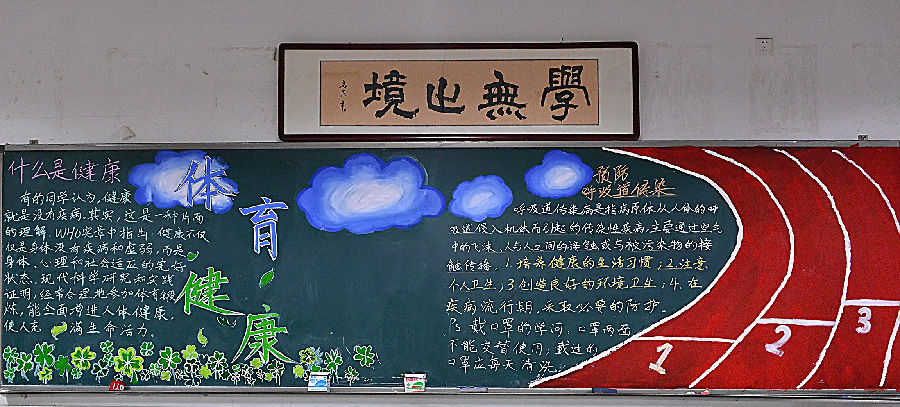 學無止境
什么是健康
有的同学认为,健康
就是没有疾病.其实,这是一种片面
的理解.WHO宪章中指出:健康不仅
仅是身体没有疾病和虚弱,而是
身体、心理和社会适应的完好
状态.现代科学研究和实践
证明,经常合理地参加体育锻
炼,能全面增进人体健康,
使人充满生命活力.
体育健康
预防
呼吸道传染
呼吸道传染病是指病原体从人体的呼
吸道侵入机体而引起的传染性疾病,主要通过空气
中的飞沫、人与人之间的接触或与被污染物的接
触传播.1.培养健康的生活习惯;2.注意
个人卫生;3.创造良好的环境卫生;4.在
疾病流行期,采取必要的防护.
5.戴口罩的学问:口罩两面
不能交替使用;戴过的
口罩应每天清洗.
1
2
3